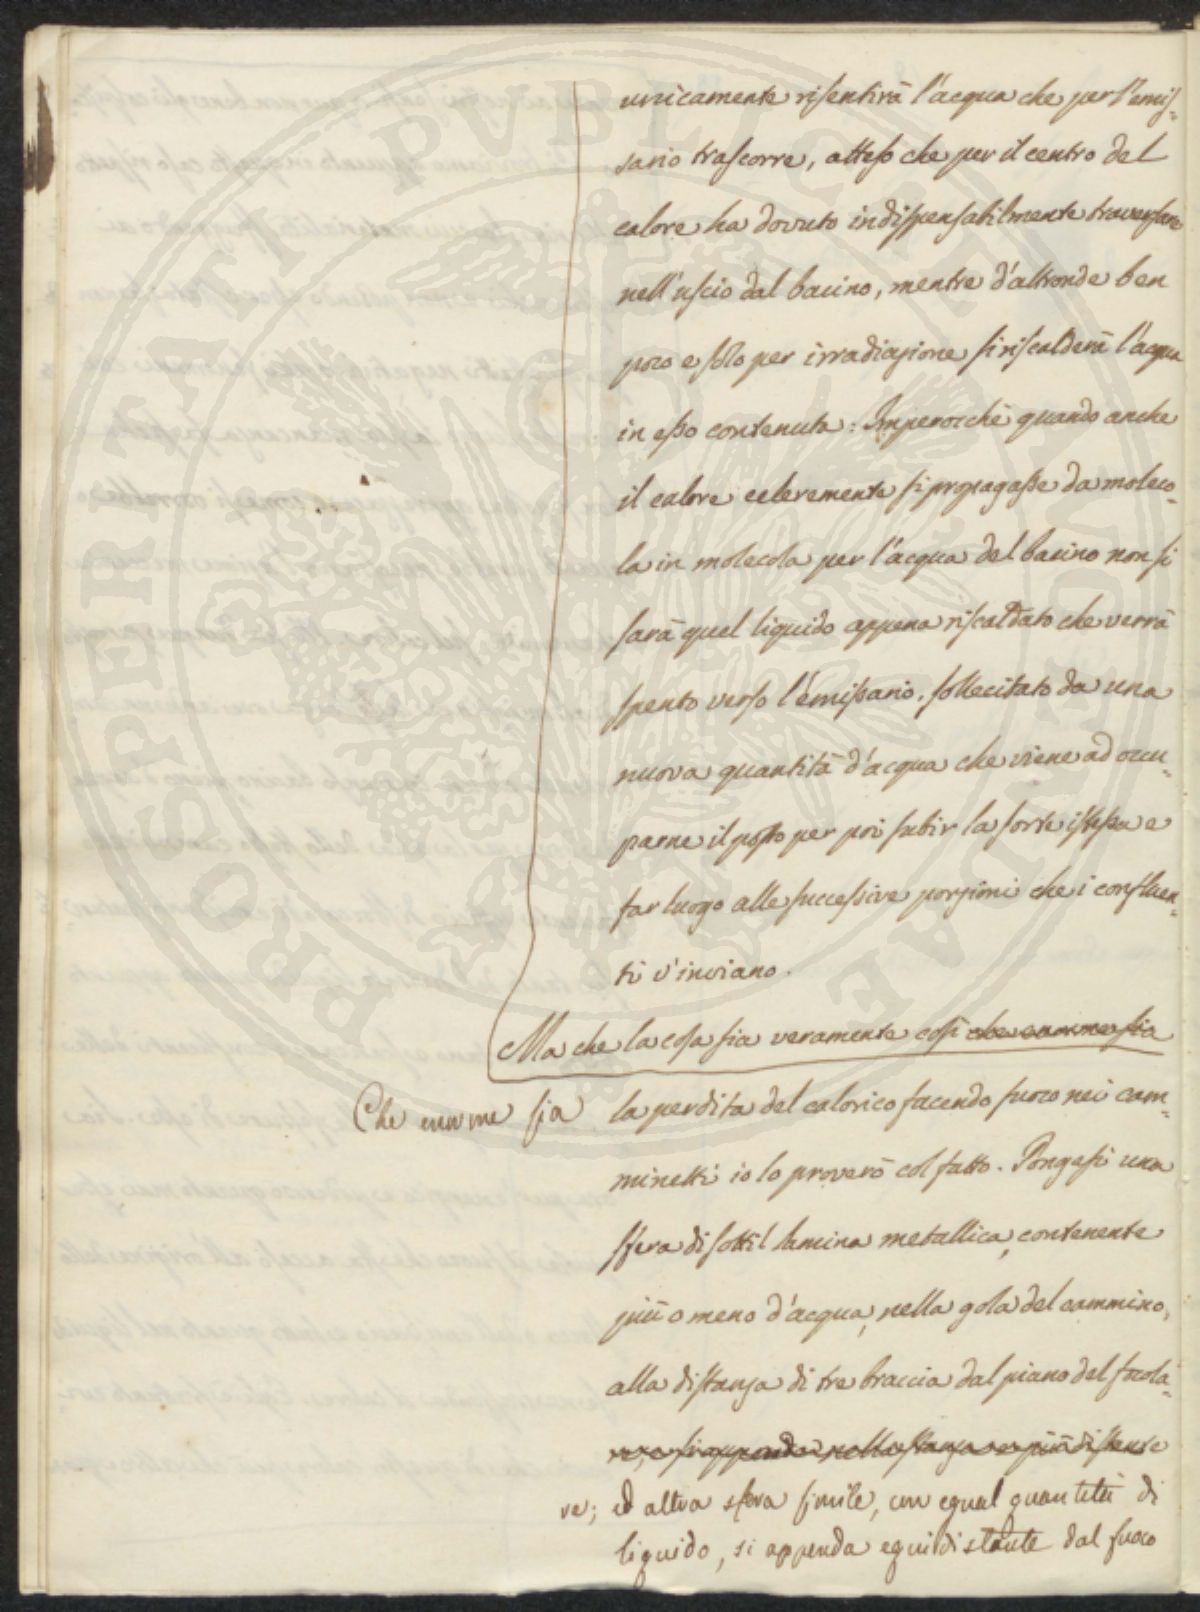 unicamente risentirà l'acqua che per l'emis=
sario trascorre, atteso che per il centro del
calore ha dovuto indispensabilmente traversare
nell'uscio dal bacino, mentre d'altronde ben
poco e solo per irradiazione si riscalderà l'acqua
in esso contenuta: Imperocchè quando anche
il calore celeremente si propagasse da moleco=
la in molecola per l'acqua del bacino non si
sarà quel liquido appena riscaldato che verrà
spento verso l'emissario, sollecitato da una
nuova quantità d'acqua che viene ad occu=
parne il posto per poi subir la sorte istessa e
far luogo alle successive porzioni che i confluen=
ti v'inviano.
Ma che la cosa sia veramente così che enorme sia
Che enorme sia la perdita del calorico facendo fuoco nei cam=
minetti io lo proverò col fatto. Pongasi una
sfera di sottil lamina metallica, contenente
più o meno d'acqua, nella gola del cammino,
alla distanza di tre braccia dal piano del focola=
re, e si appenda nella stanza
re; ed altra sfera simile, con egual quantità di
liquido, si appenda equidistante dal fuoco
PROSPERITATI PVBLICAE AVGENDAE